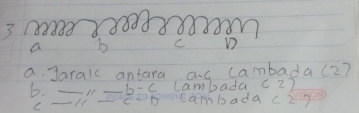 3
a b c D
a. Jarak antara a-c Lambada (2?
b. —〃— b-c Lambada (2?
c —〃— c-D Lambada (2?